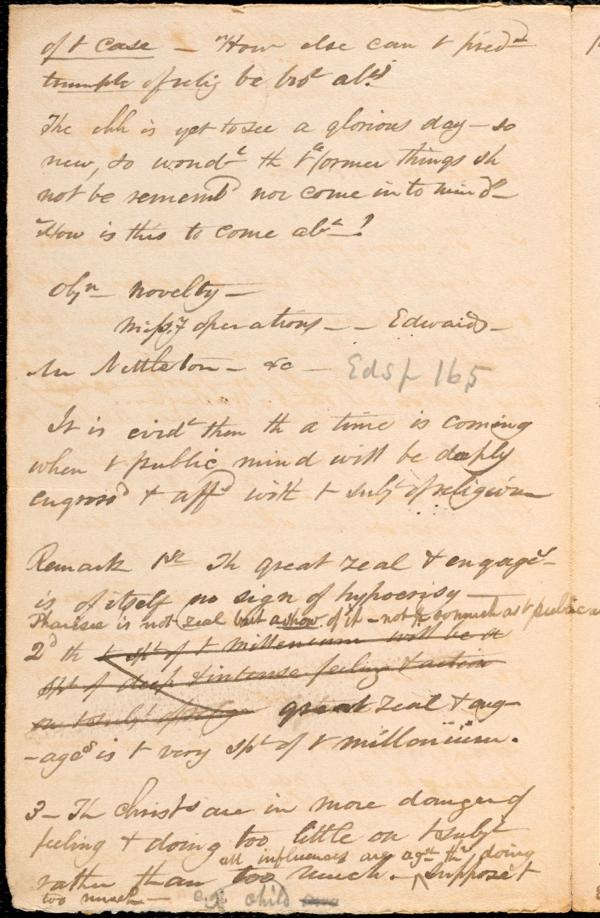 of t case – How else can t pred^d
triumph of relig be bro^t ab^t?
The chh is yet to see a glorious day – so
new, so wond^l th t former things sh
not be rememb^d nor come into mind –
How is this to come ab^t – !
Obj^n – novelty –
Miss^y operations – – Edwards –
Mr Nettleton – &c – Eds p 165
It is evid^t then th a time is coming
when t public mind will be deeply
engross^d & aff^d with t subj^t of religion
Remark 1st Th great zeal & engage^s –
is of itself no sign of hypocrisy –
Pharisee is not zeal but a show of it – not so much as t publican
2^d th t sp^t of t millenium will be a
sp^t of deep & intense feeling & action
on t subj^t of relig great zeal & eng–
–age^s is t very sp^t of t millonium.
3 – Th Christ^s are in more danger of
feeling & doing too little on t subj^t
all influences are ag^st th^r doing
rather than too much. – Suppose t
too much – child